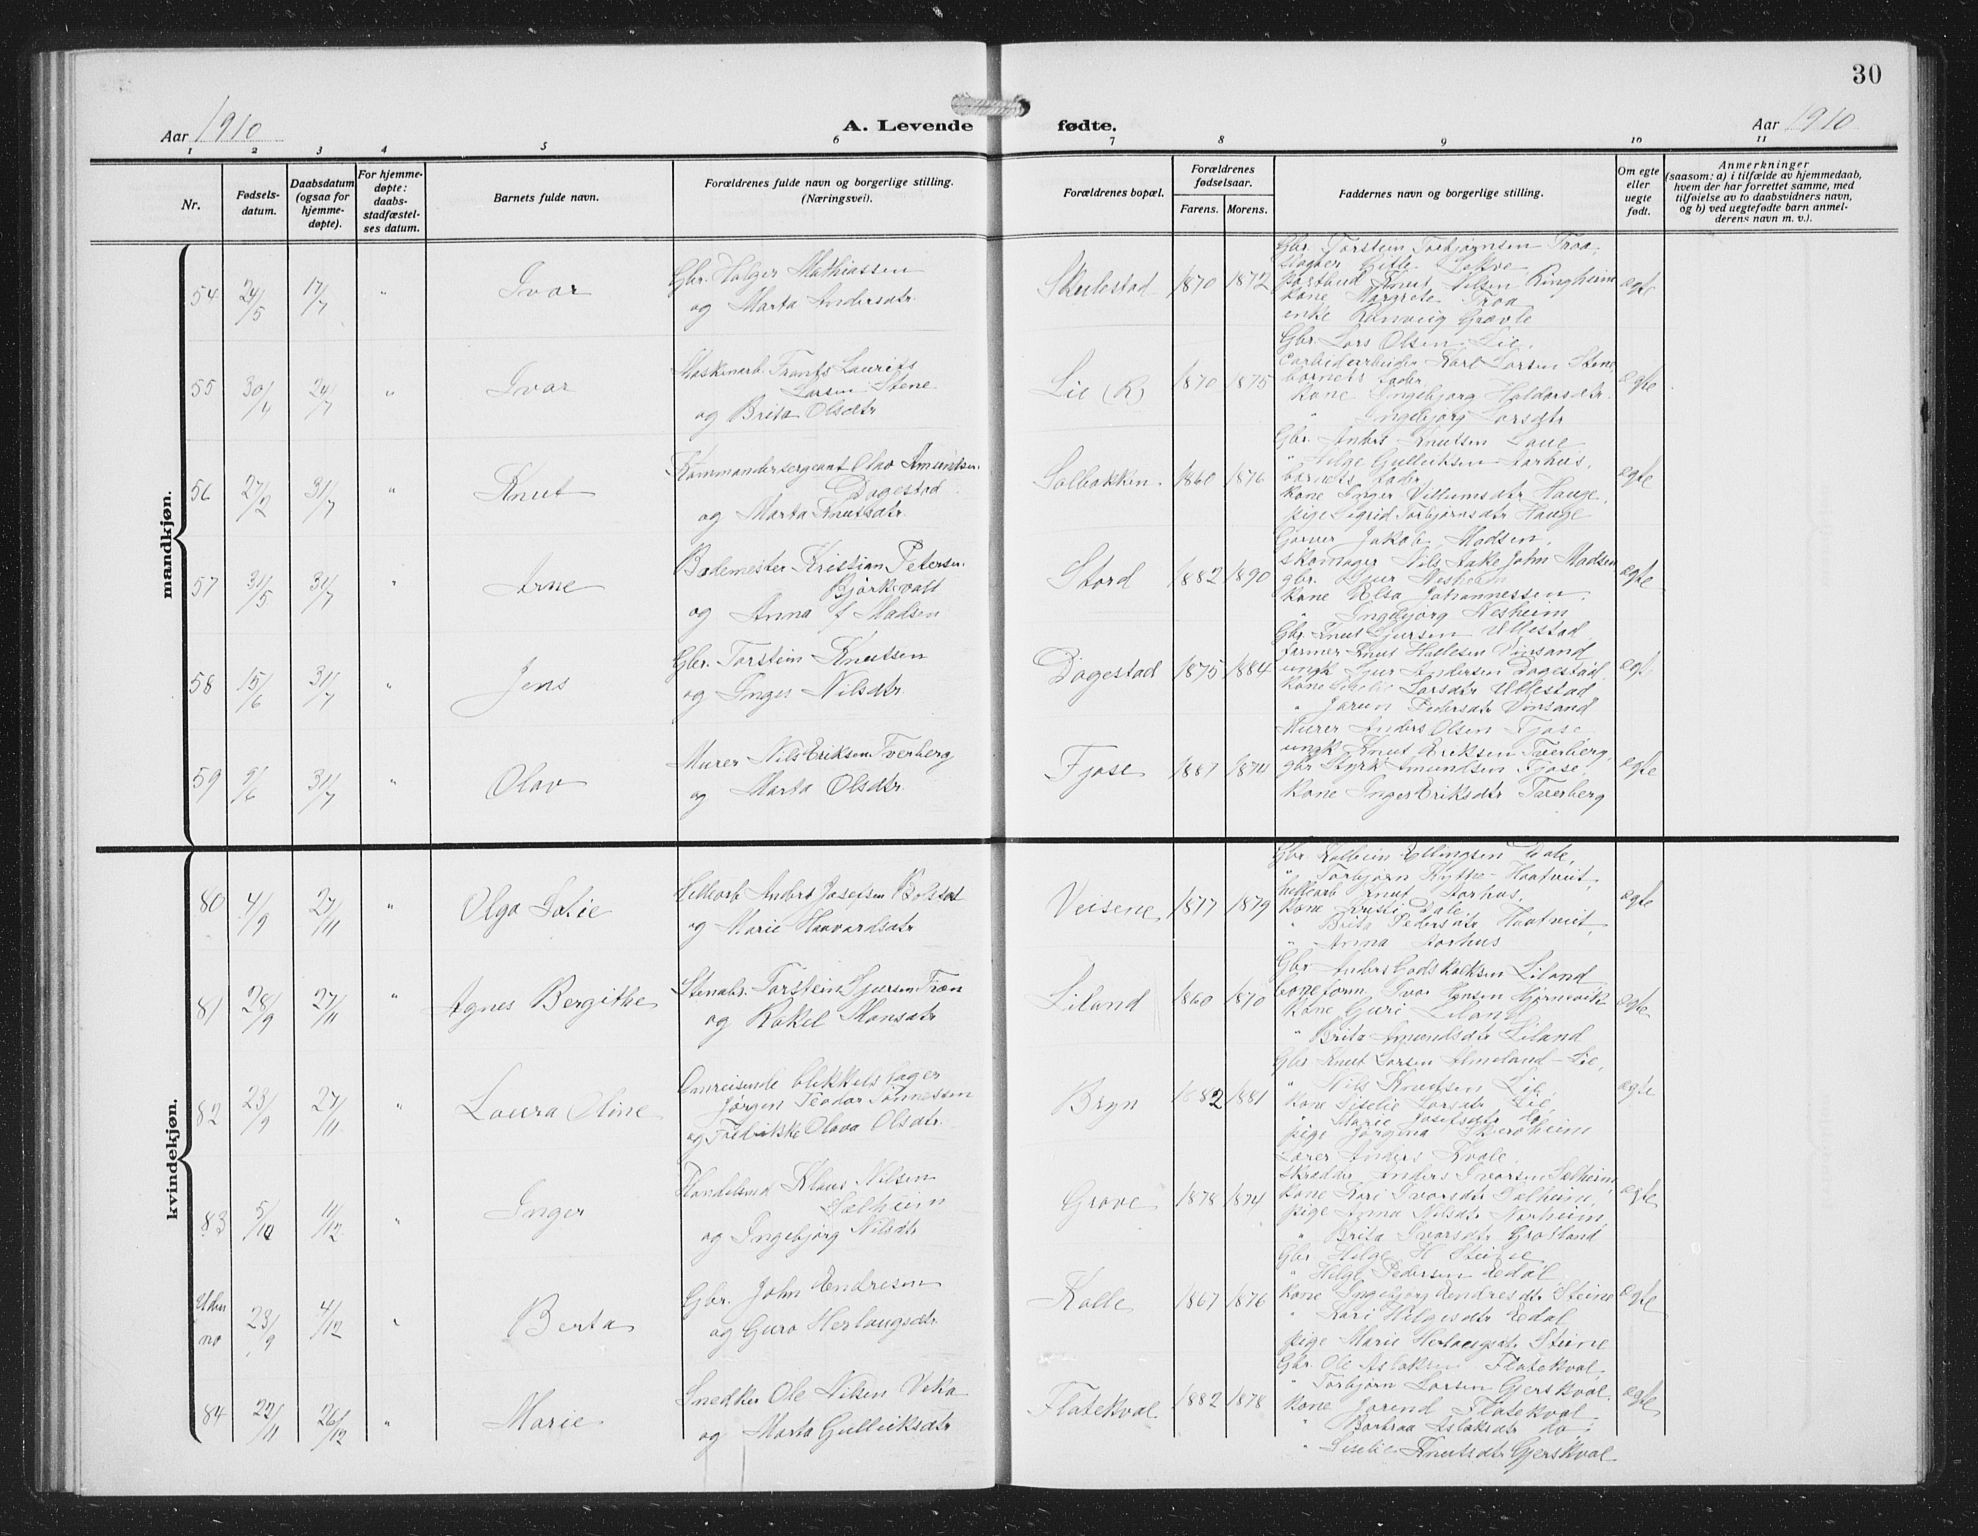 30
Aar 1910
A. Levende fødte.
Aar 1910
1 2 3 4 5 6 7 8 9 10 11
Nr.
Fødsels-
datum.
Daabsdatum
(ogsaa for
hjemme-
døpte).
For hjemme-
døpte:
daabs-
stadfæstel-
ses datum.
Barnets fulde navn.
Forældrenes fulde navn og borgerlige stilling.
(Næringsvei).
Forældrenes bopæl.
Forældrenes
fødselsaar.
Farens. Morens.
Faddernes navn og borgerlige stilling.
Om egte
eller
uegte
født.
Anmerkninger
(saasom: a) i tilfælde av hjemmedaab,
hvem der har forrettet samme, med
tilføielse av to daabsvidners navn,
og b) ved uegtefødte barn anmel-
derens navn m. v.).
mandkjøn.
54 24/5 17/7 " Ivar
Gbr. Holger Mathiassen
og Marta Andersdtr.
Skulestad 1870 1872
Gbr. Torstein Torbjørnsen Troa,
Gitle Lekve
Knut Nilsen Ringheim
kone Margrete Troa
enke Rønveig Grævle
egte
55 30/4 24/7 " Ivar
Maskinarb. Frants Laurits
Larsen Stene
og Brita Olsdtr
Lie (R) 1870 1875
Gbr. Lars Olsen Lie,
Carbidarbeider Karl Larsen Stene
barnets fader
kone Ingebjørg Haldorsdtr.
" Ingebjørg Larsdtr
egte
56 27/2 31/7 " Knut
Kommandersergeant Olav Amundsen
Dagestad
og Marta Knutsdtr.
Solbakken. 1860 1876
Gbr. Anders Knutsen Laue
" Helge Gulleiksen Aarhus,
barnets fader
kone Inger Villumsdtr Hauge,
pige Sigrid Torbjørnsdtr Hauge
egte
57 31/5 31/7 " Arne
Bademester Kristian Petersen
Bjørkevalt
og Anna J Madsen
Stord 1882 1890
Garver Jakob Madsen,
skomager Nils Aake John Madsen
gbr. Sjur Nesheim
kone Elsa Johannessen,
" Ingebjørg Nesheim
egte
58 15/6 31/7 " Jens
Gbr. Torstein Knutsen
og Inger Nilsdtr.
Dagestad 1875 1884
Gbr. Knut Sjursen Ullestad
farmer Knut Hellesen Vinsand
ungk. Sjur Andersen Dagestad,
kone Larsdtr Ullestad
" Jorun Pedersdtr Vinsand
egt.
59 9/6 31/7 " Olav
Murer Nils Eriksen Tverberg
og Marta Olsdtr.
Fjose 1881 1874
Murer Anders Olsen Fjose
ungk Knut Eriksen Tverberg,
gbr Styrk Amundsen Fjose,
kone Inger Eriksdtr Tverberg
egte
kvindekjøn.
80 4/9 27/11 " Olga Solie
Helleorb Anders Josefsen Bolstad
og Marie Haavardsdtr
Veisene 1877 1879
Gbr Kolbein Ellingsen Dale,
" Torbjørn Kytte-Haatveit,
hellearb Knut Aarhus,
kone Kristi Dale,
" Brita Pedersdtr Haatveit,
" Anna Aarhus
egte
81 28/9 27/11 " Agnes Bergithe
Stenarb. Torstein Sjursen Troen
og Rakel Monsdtr
Liland 1860 1870
Gbr Anders Godskalksen Liland,
Ivar Hansen Hjørnevik
kone Guri Liland
" Brita Amundsdtr Liland
egte
82 23/9 27/11 " Laura Oline
Omreisende blikkenslager
Jørgen Teodor Tønnessen
og Fredrikke Olava Olsdtr.
Bryn 1882 1881
Gbr Knut Larsen Almeland-Lie,
" Nils Knutsen Lie
kone Siselie Larsdtr Lie
" Marie Josefsdtr do,
pige Jørgina Skerdheim
egte
83 5/10 11/12 " Inger
Handelsmd Klaus Nilsen
Sætheim
og Ingebjørg Nilsdtr
Grove 1878 1874
Lærer Anders Kvale
skrædder Anders Ivarsen Sætheim,
kone Kari Ivarsdtr Sætheim,
pige Anna Nilsdtr Norheim,
" Brita Ivarsdtr Grotland
egte
Uden no 23/9 4/12 " Berta
Gbr. John Endresen
og Guro Herlaugsdtr.
Kolle 1867 1876
Gbr Helge H Steine
" Helge Pedersen Edal,
kone Ingebjørg Endresdtr Steine
" Kari Helgesdtr Edal
pige Marie Herlaugsdtr Steine
egte
84 22/11 26/12 " Marie
Snedker Ole Nilsen Veka
og Marta Gulleiksdtr
Flatekval 1882 1878
Gbr. Ole Aslaksen Flatekval,
" Torbjørn Larsen Gjerskval
kone Jorend Flatekval
" Barbraa Aslaksdtr do,
" Siselie Knutsdtr Gjerskval
egte